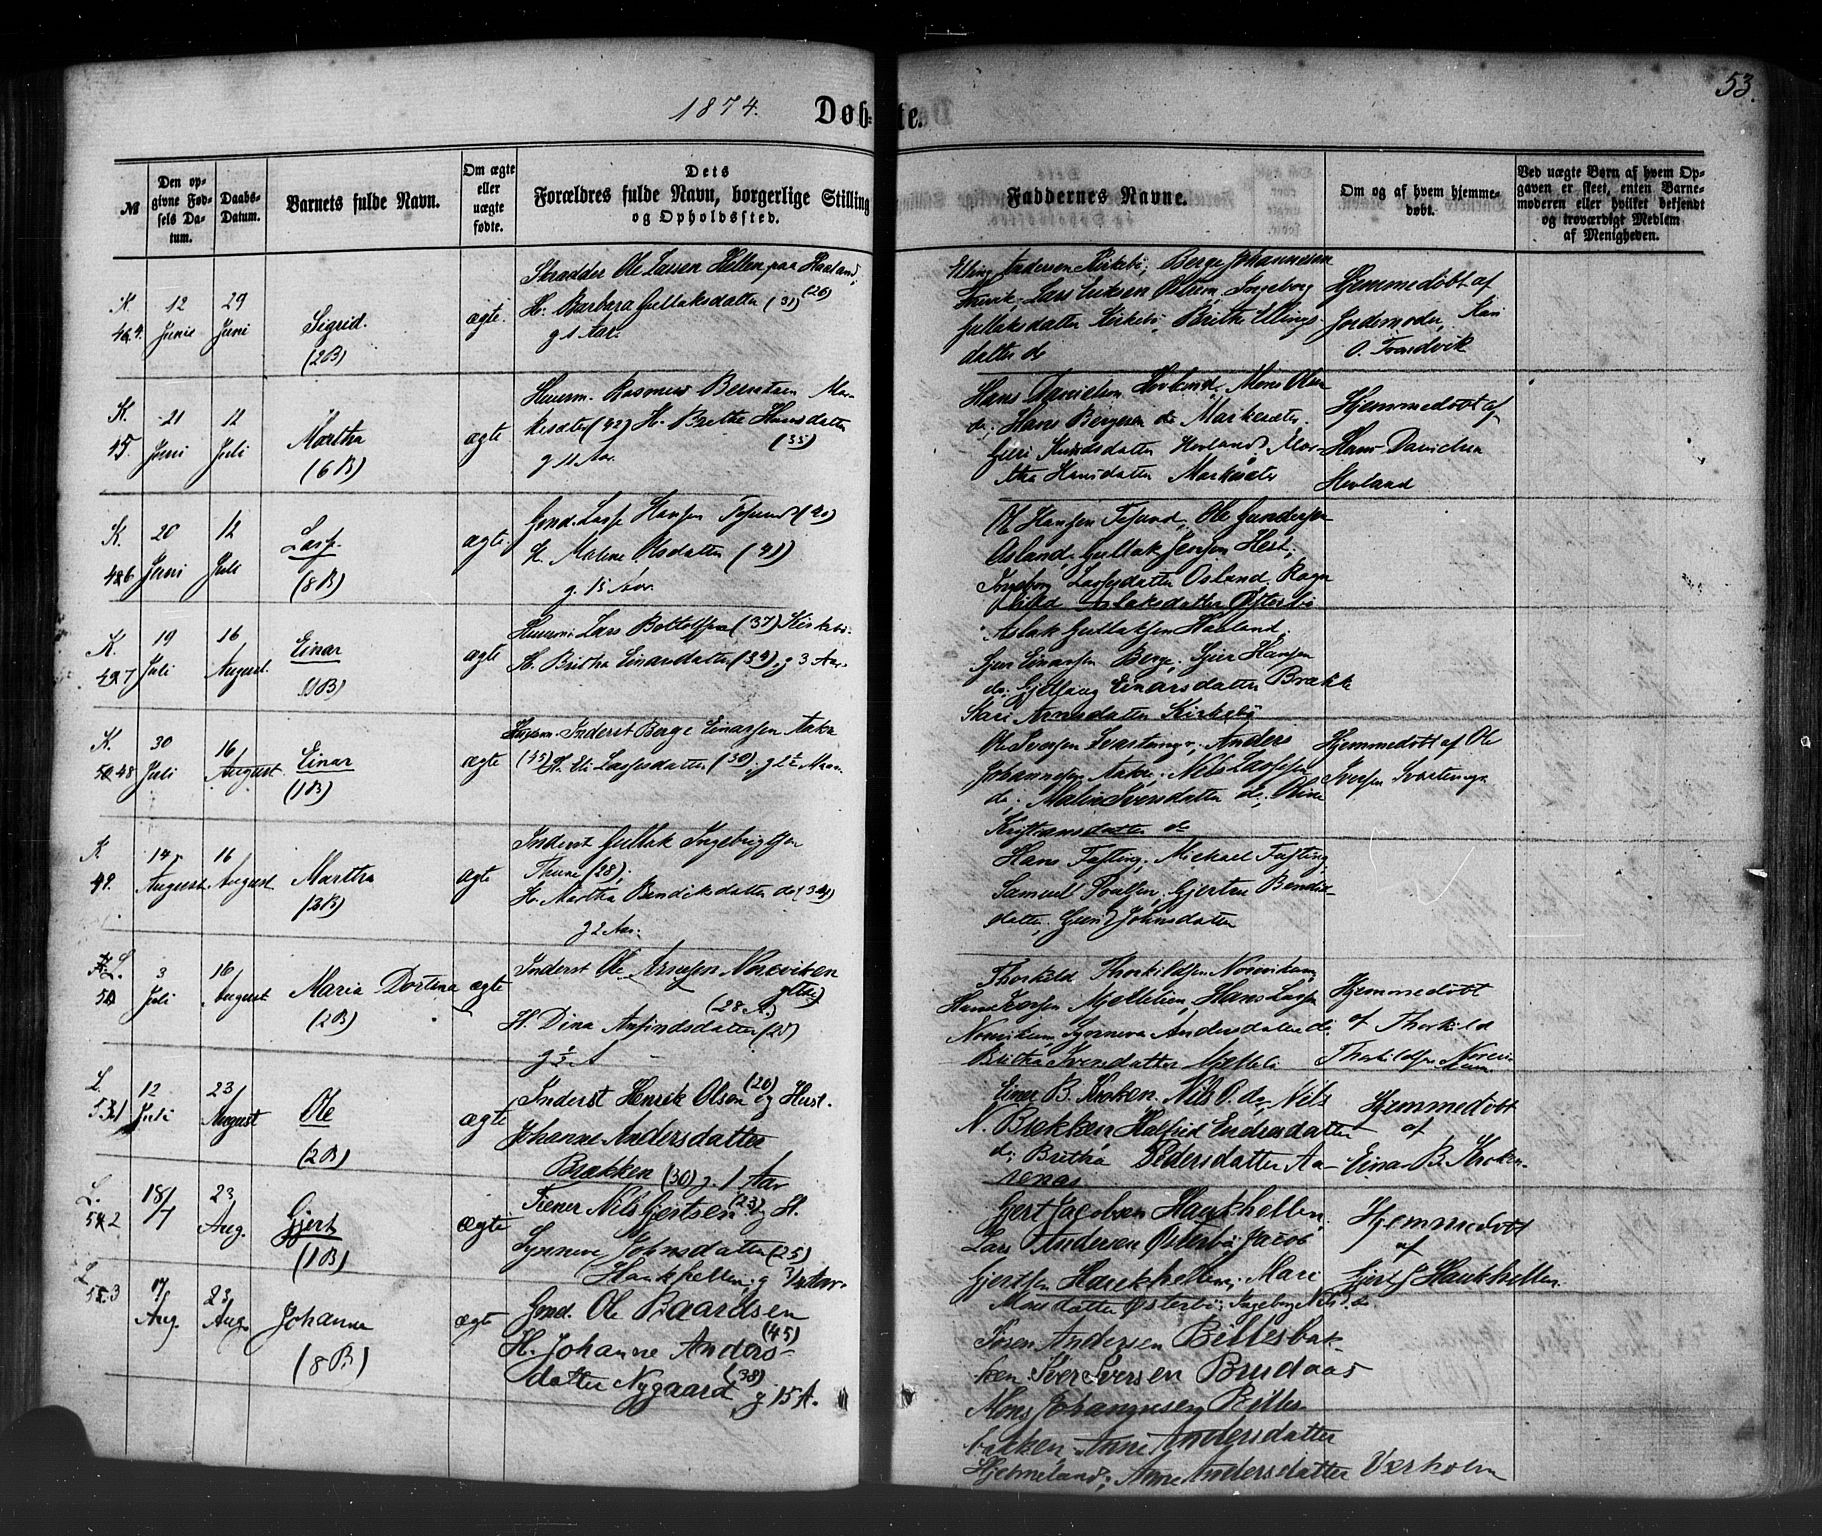 53.
1874.
Døb-te.
№
Den op-
givne Fød-
sels Da-
tum.
Daabs-
Datum.
Barnets fulde Navn.
Om ægte
eller
uægte
fødte.
Dets
Forældres fulde Navn, borgerlige Stilling
og Opholdssted.
Faddernes Navne.
Om og af hvem hjemme-
døbt.
Ved uægte Børn af hvem Op-
gaven er skeet, enten Barne-
moderen eller hvilket bekjendt
og troværdigt Medlem
af Menigheden.
K.
12 Juni
29 Juni
Sigrid.
(2B)
ægte.
Skrædder Ole Lassen Hellen paa Haaland,
(26)
H. Barbara Gullaksdatter (31)
g 1 Aar.
Elling Andersen Kirkebø, Berge Johannesen
Lars Eriksen Ingeborg
Gullaksdatter Kirkebø, Brithe Ellings-
datter do
Hjemmedøbt af
Jordemoder, Kari
O. Trandvik
K.
45.
21 Juni
12 Juli
Martha
(6B)
ægte
Huusm. Rasmus Berntsen Mar-
kesæter (42) H. Brithe Hansdatter
(35)
g 11 Aar.
Hans Davidsen Hovland, Mons Olsen
do, Hans Bergesen do Markesæter,
Guri Knudsdatter Hovland, Mar-
tha Hansdatter Markesæter
Hjemmedøbt af
Hans Davidsen
Hovland
K.
46
20 Juni
12 Juli
Lasse.
(8B)
ægte.
Gmd. Lasse Hansen Tesund (40)
H. Malene Olsdatter (41)
g. 15 Aar.
Ole Hansen Tesund, Ole Gundersen
Osland, Gullak Jensen Hest,
Ingeborg Lassesdatter Osland, Ragn
hild Aslaksdatter Østerbø
K.
47
19 Juli
16 August.
Einar
(1B)
ægte
Huusm. Lars Bottolfsen (37) Kirkebø.
H. Britha Einarsdatter (34), g 3 Aar.
Aslak Gullaksen Haaland,
Einarsen Berge, Hansen
do, Einarsdatter Brække
Kari Arnesdatter Kirkebø
K.
48
30 Juli
16 August.
Einar
(1B)
ægte
Huusm. Inderst Berge Einarsen Aakre
(45) H. Eli Lassesdatter (30), g 2½ Maan.
Ole Iversen Svartunge, Anders
Johannesen Aakre, Nils Lassesen
do, Malin Svensdatter do, Oline
Kristiansdatter do
Hjemmedøbt af Ole
Iversen Svartunge
K
49.
14 August.
16 August.
Martha
(2B)
ægte
Inderst Gullak Ingebrigtsen
Thune (28),
H. Martha Bendiksdatter do (34)
g 2 Aar.
Hans Fasting, Michael Fasting,
Samuel Poulsen, Gjertru Bendiks-
datter, Guri Johnsdatter
L.
50
3 Juli
16 August
Maria Dortina
(2B)
ægte
Inderst Ole Arnesen Noreviken
(28 A.)
H. Dina Anfindsdatter
g ½ A
Thorkild Thorkildsen Norevikum,
Hans Larsen Hans Lassen
Norevikum, Synneva Andersdatter do,
Britha Iversdatter
Hjemmedøbt
af Thorkild
Thorkildsen Norevi-
kum
L.
51
12 Juli
23 August
Ole
(2B)
ægte
Inderst Henrik Olsen (26) og Hust.
Johanne Andersdatter
Brækken (30) g. 1 Aar
Einar B. Kroken, Nils O. do, Nils
N. Brækken Halfrid Endresdatter
do, Britha Pedersdatter Aa-
renæs
Hjemmedøbt
af
Einar B. Kroken.
L.
52
18/7
23 Aug.
Gjert
(1B)
ægte
Tjener Nils Gjertsen (23) og H.
Synneve Johnsdatter (25)
Haukhellen, g Aar.
Gjert Jacobsen Haukhellen,
Lars Andersen Østerbø, Jacob
Gjertsen Haukhellen, Mari
Monsdatter Østerbø, Ingeborg Nilsd. do
Hjemmedøbt
af
Gjert J Haukhellen.
L.
53
17 Aug.
23 Aug.
Johanna
(8B)
ægte
Gmd. Ole Baardsen
(45)
H. Johanne Anders-
datter Nygaard (38) g 15 A.
Andersen Billesbak-
ken Iver Iversen Brudaas
Mons Johannesen Billes-
bakken Anne Andersdatter
Hjelmeland, Anne Andersdatter Værholm